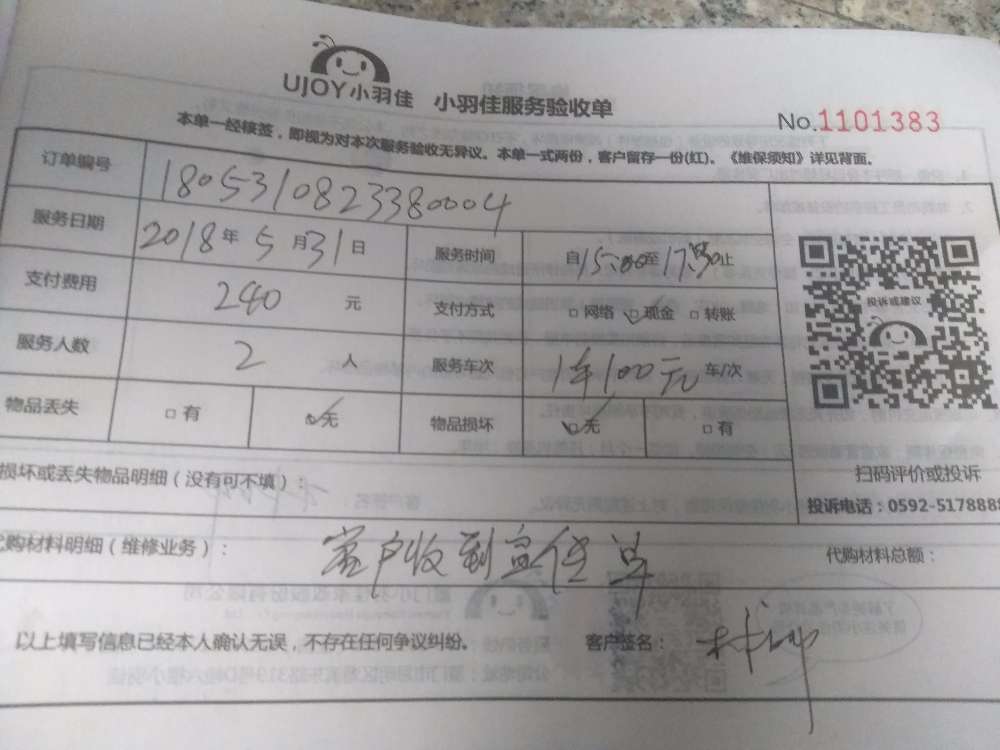 UJOY小羽佳 小羽佳服务验收单
No.1101383
本单一经核签，即视为对本次服务验收无异议。本单一式两份，客户留存一份(红)。《维保须知》详见背面。
订单编号 1805310823380004
服务日期 2018年5月31日 服务时间 自15:00至17:30止
支付费用 240元 支付方式 □网络 ☑现金 □转账
服务人数 2人 服务车次 1车100元 车/次
物品丢失 □有 ☑无 物品损坏 ☑无 □有
投诉或建议
扫码评价或投诉
投诉电话：0592-5178888
损坏或丢失物品明细（没有可不填）：
代购材料明细（维修业务）： 客户收到宣传单 代购材料总额：
以上填写信息已经本人确认无误，不存在任何争议纠纷。 客户签名：